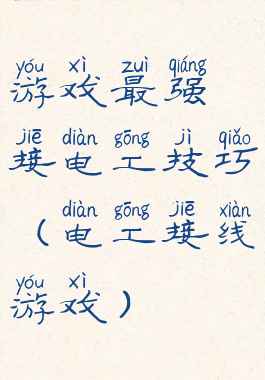 yóu xì zuì qiáng
游戏最强
jiē diàn gōng jì qiǎo
接电工技巧
diàn gōng jiē xiàn
（电工接线
yóu xì
游戏）